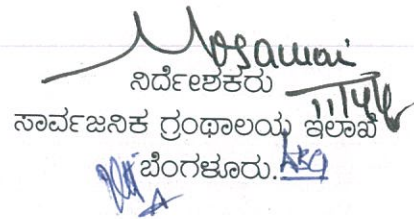 ನಿರ್ದೇಶಕರು
ಸಾರ್ವಜನಿಕ ಗ್ರಂಥಾಲಯ ಇಲಾಖೆ
ಬೆಂಗಳೂರು.